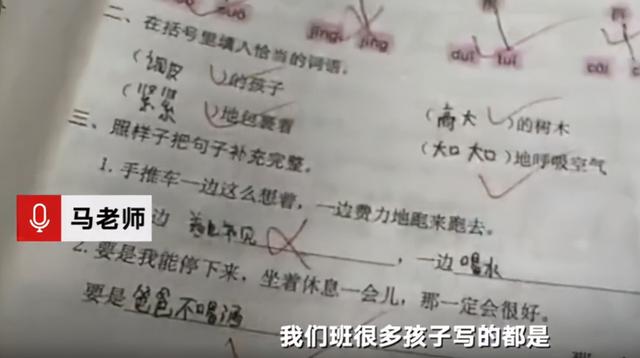 jīng jǐng
duì tuì
二、在括号里填入恰当的词语。
(调皮)的孩子 (高大)的树木
(紧紧)地包裹着 (大口大口)地呼吸空气
三、照样子把句子补充完整。
1. 手推车一边这么想着，一边费力地跑来跑去。
边 不见，一边喝水
2. 要是我能停下来，坐着休息一会儿，那一定会很好。
要是爸爸不喝酒
马老师
我们班很多孩子写的都是